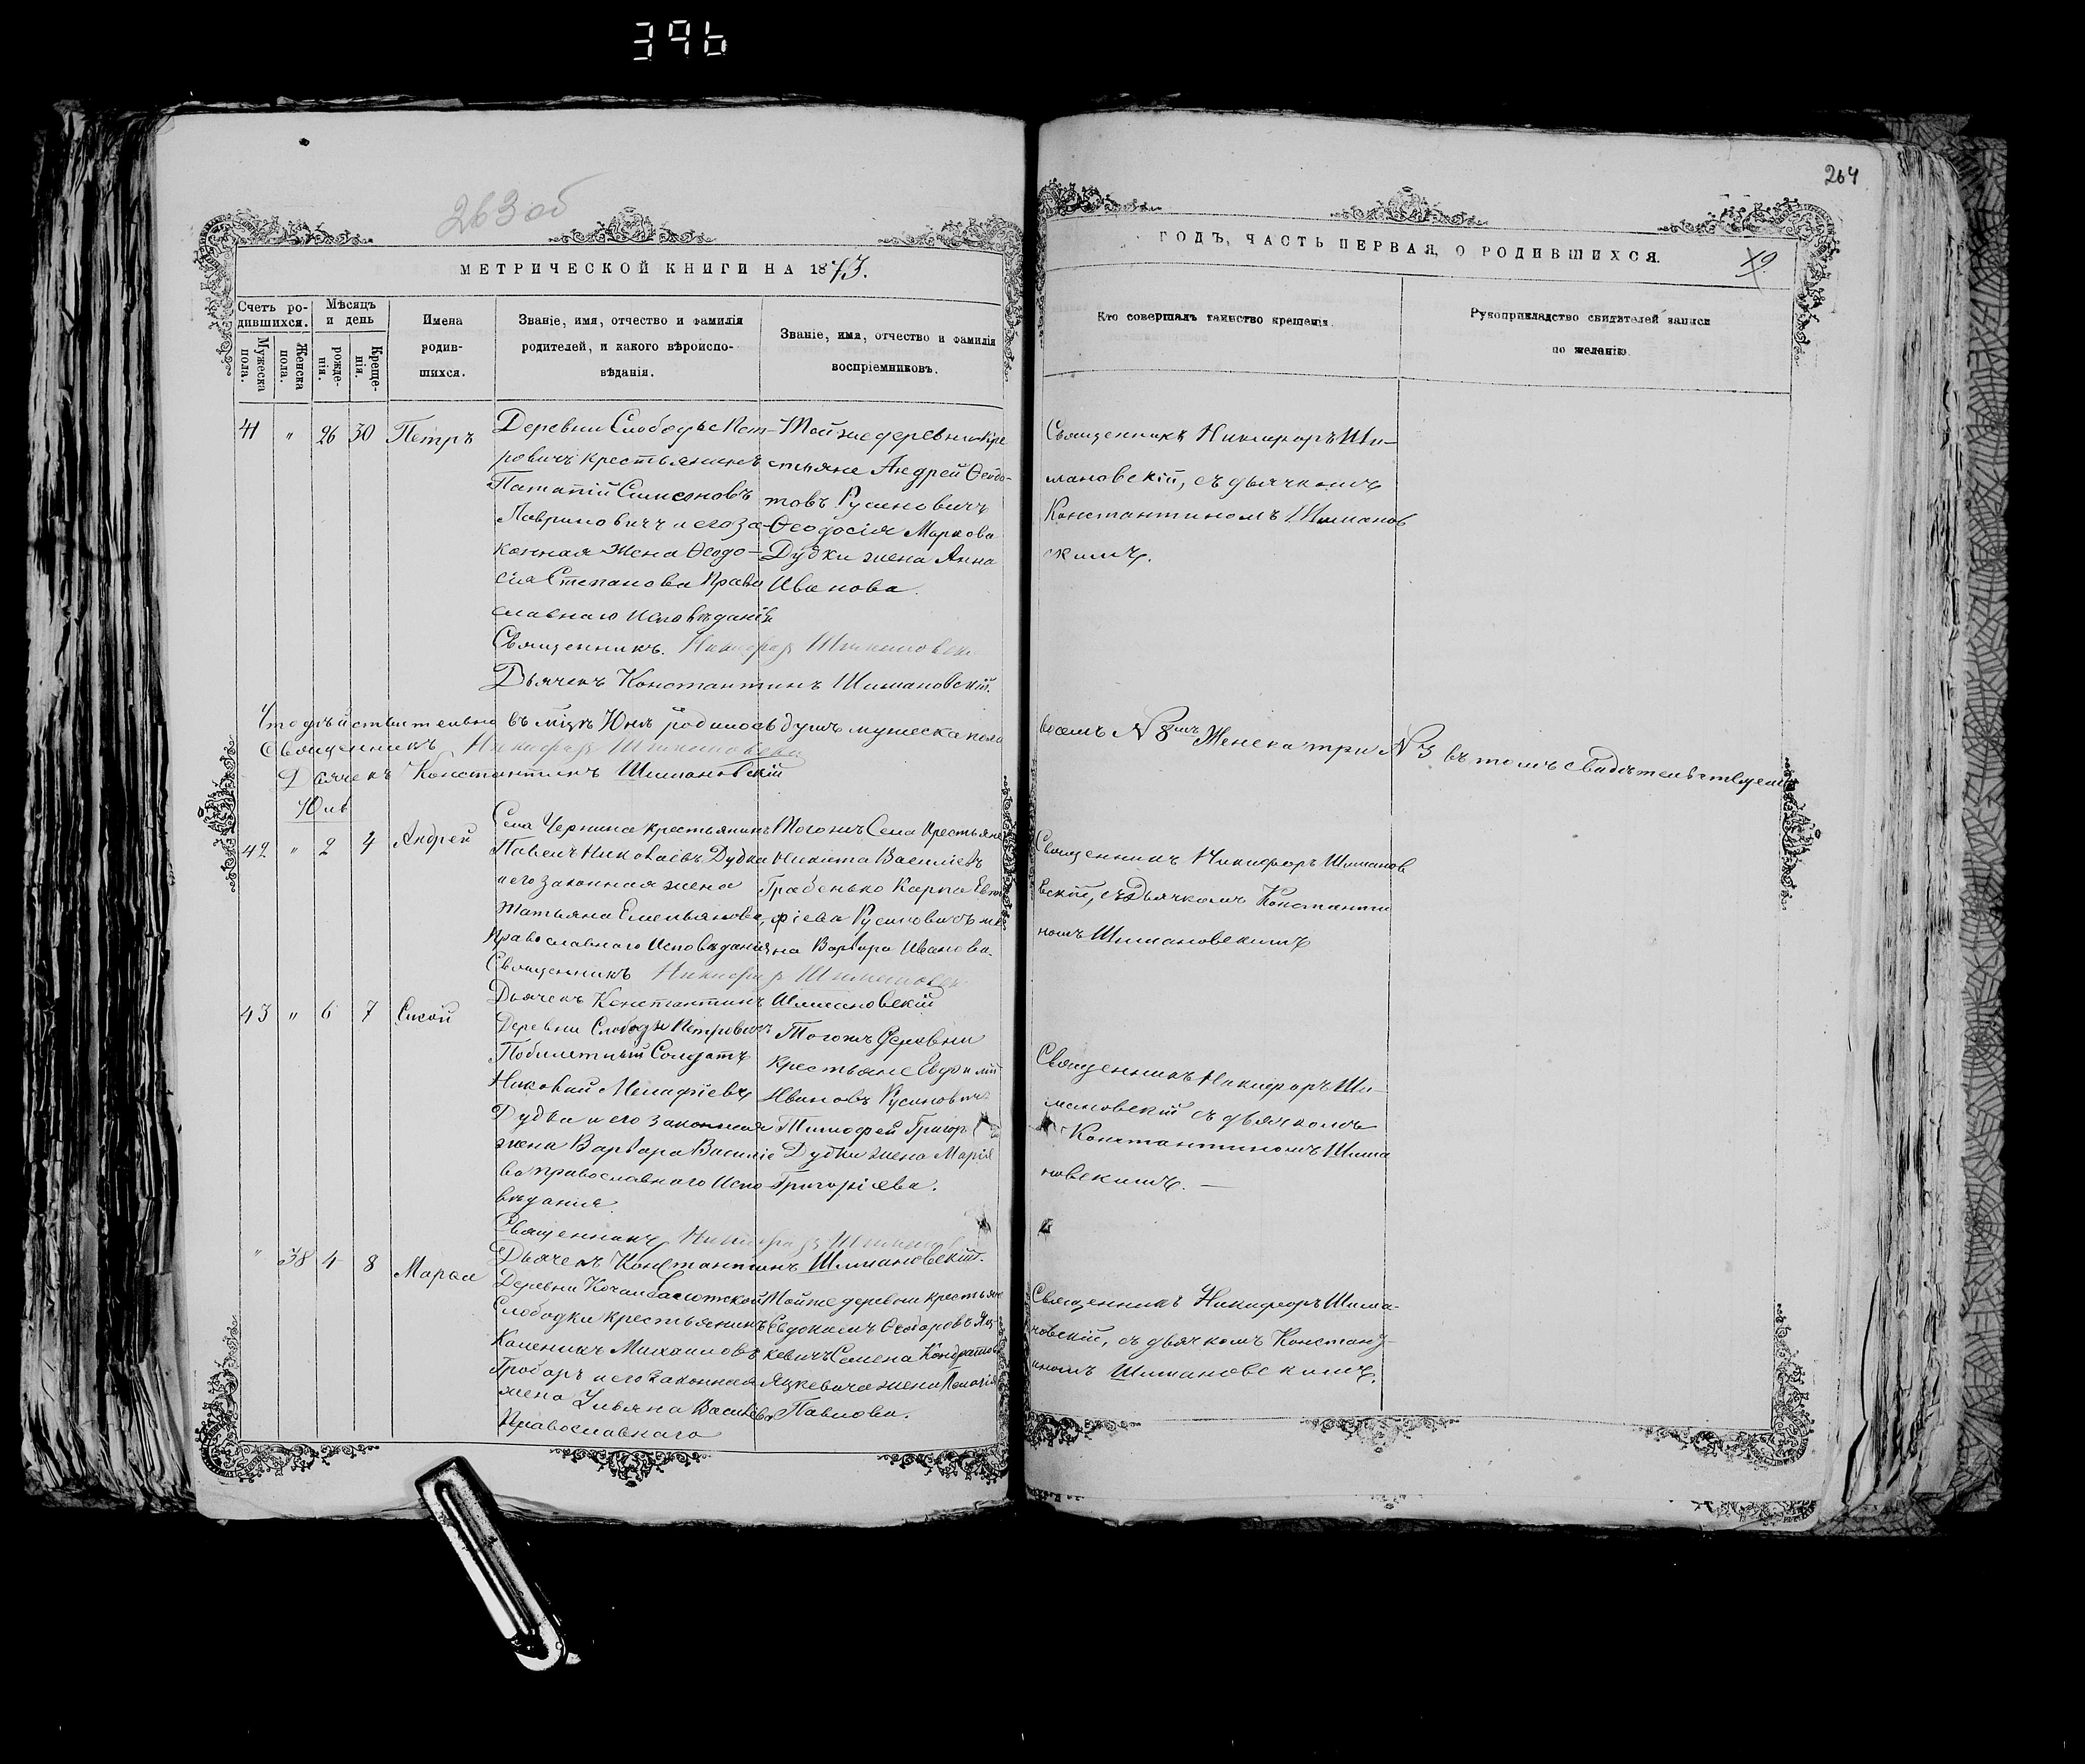 396
264
263 об
МЕТРИЧЕСКОЙ КНИГИ НА 1873.
ГОДЪ, ЧАСТЬ ПЕРВАЯ, О РОДИВШИХСЯ.
Счетъ ро-
дившихся.
Мужеска пола.
Женска пола.
Мѣсяцъ
и день
рожде-
нія.
Креще-
нія.
Имена
родив-
шихся.
Званіе, имя, отчество и фамилія
родителей, и какого вѣроиспо-
вѣданія.
Званіе, имя, отчество и фамилія
воспріемниковъ.
Кто совершалъ таинство крещенія.
Рукоприкладство свидѣтелей записи
по желанію
41 " 26 30 Петръ
Деревни Слободы Пет-
ровичъ крестьянинъ
Патапій Симеоновъ
Лавриновичъ и его за-
конная жена Ѳеодо-
сія Степанова Право
славнаго Исповѣданія
Священникъ. Никифоръ Шимановск
Дьячекъ Константинъ Шимановскій.
Тойже деревни кре
стьяне Андрей Ѳеодо-
товъ Русиновичъ
Ѳеодосія Маркова
Дудки жена Анна
Иванова.
Священникъ Никифоръ Ши-
мановскій, съ дьячкомъ
Константиномъ Шиманов
скимъ.
Что дѣйствительно въ мцѣ Юнѣ родилось душъ мужеска пола
восемь N 8мъ Женска три N 3 въ томъ свидѣтельствуемъ
Священникъ Никифоръ Шимановскій
Дьячекъ Константинъ Шимановскій
Юль
42 " 2 4 Андрей
Села Чернина крестьянинъ
Павелъ Николаевъ Дудка
и его законная жена
Татьяна Емельянова,
Православнаго Исповѣданія
Священникъ Никифоръ Шимановск
Дьячекъ Константинъ Шимановскій
Тогожъ Села Крестьяне
Никита Василіевъ
Грабенько Карпа Евти
фіева Русиновичъ же
на Варвара Иванова.
Священникъ Никифоръ Шиманов
вскій, съ Дьячкомъ Константи
номъ Шимановскимъ
43 " 6 7 Сисой
Деревни Слободы Петровичъ
Побилетный Солдатъ
Николай Мелафіевъ
Дудка и его законная
жена Варвара Василіе
ва православнаго Испо-
вѣданія.
Священникъ Никифоръ Шиманов
Дьячекъ Константинъ Шимановскій.
Тогожъ Деревни
крестьяне Евфимій
Ивановъ Русиновичъ
Тимофей Григорь
Дудки жена Марія
Григоріева.
Священникъ Никифоръ Ши-
мановскій съ дьячкомъ
Константиномъ Шима
новскимъ. —
" 38 4 8 Марѳа
Слободки крестьянинъ
Каленикъ Михаиловъ
Грабаръ и его законная
жена Ульяна Васильева
Православнаго
Тойже деревни крестьяне
Евдокимъ Ѳеодоровъ Яц-
кевичъ Семена Кондратов
Яцкевича жена Пелагія
Павлова.
Священникъ Никифоръ Шима-
новскій, съ дьячкомъ Констант-
иномъ Шимановскимъ.